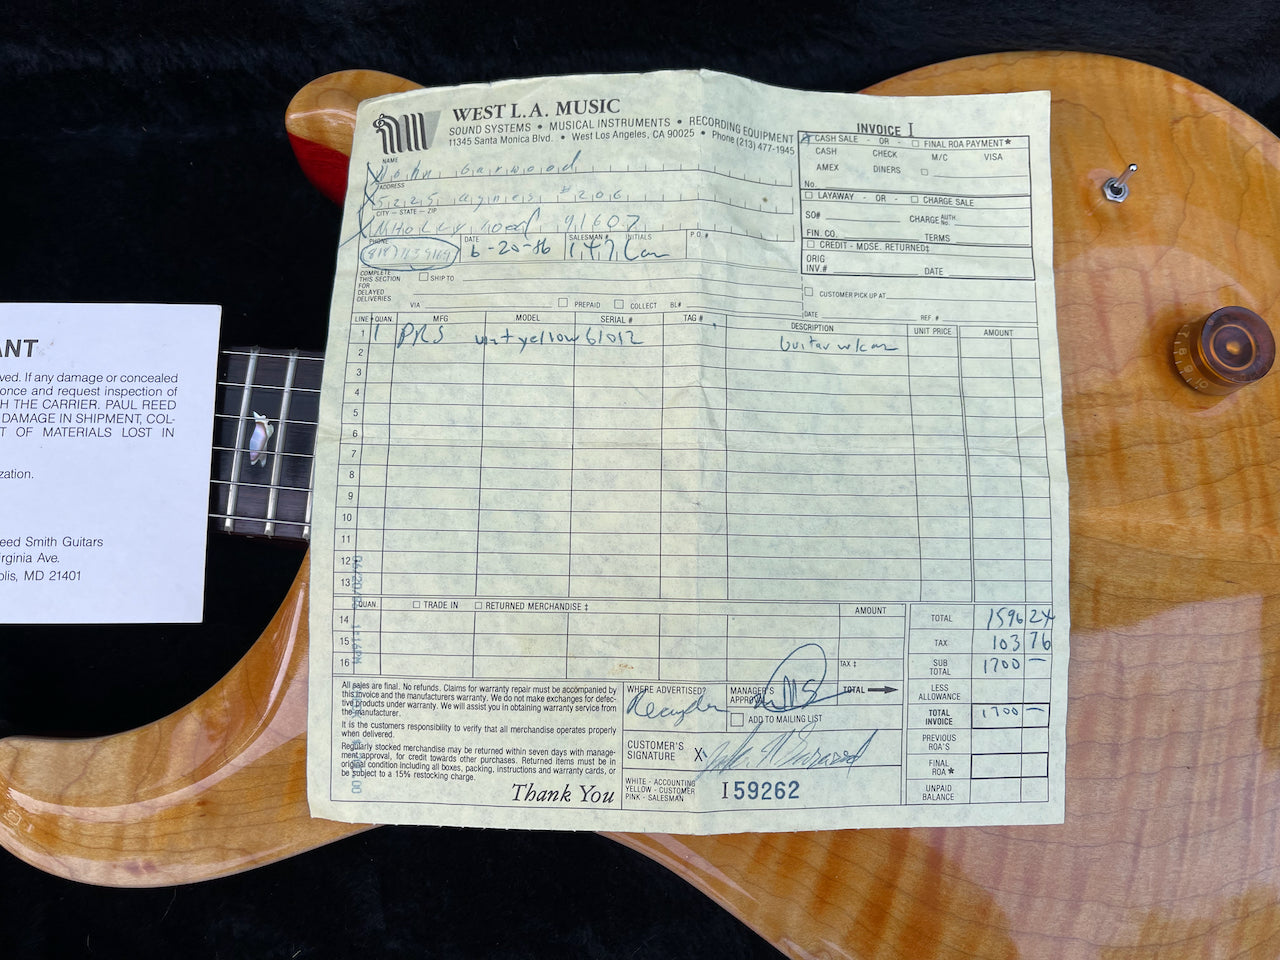 WEST L.A. MUSIC
SOUND SYSTEMS • MUSICAL INSTRUMENTS • RECORDING EQUIPMENT
11345 Santa Monica Blvd. • West Los Angeles, CA 90025 • Phone (213) 477-1945
INVOICE I
CASH SALE - OR - FINAL ROA PAYMENT*
CASH CHECK M/C VISA
AMEX DINERS
No.
LAYAWAY - OR - CHARGE SALE
SO# CHARGE AUTH. No.
FIN. CO. TERMS
CREDIT - MDSE. RETURNED‡
ORIG INV.# DATE
NAME
John Garwood
ADDRESS
5225 agnes #206
CITY — STATE — ZIP
N Hollywood 91607
PHONE DATE SALESMAN # INITIALS P.O. #
6-20-86
COMPLETE THIS SECTION FOR DELAYED DELIVERIES
SHIP TO
CUSTOMER PICK UP AT
VIA PREPAID COLLECT BL#
DATE REF. #
LINE QUAN. MFG MODEL SERIAL # TAG # DESCRIPTION UNIT PRICE AMOUNT
1 1 PRS vint yellow 61012 Guitar w/case
2
3
4
5
6
7
8
9
10
11
12
13
QUAN. TRADE IN RETURNED MERCHANDISE ‡ AMOUNT
14
15
16
TAX ‡
TOTAL
TOTAL 1596 24
TAX 103 76
SUB TOTAL 1700 —
LESS ALLOWANCE
TOTAL INVOICE 1700 —
PREVIOUS ROA'S
FINAL ROA*
UNPAID BALANCE
All sales are final. No refunds. Claims for warranty repair must be accompanied by
this invoice and the manufacturers warranty. We do not make exchanges for defec-
tive products under warranty. We will assist you in obtaining warranty service from
the manufacturer.
It is the customers responsibility to verify that all merchandise operates properly
when delivered.
Regularly stocked merchandise may be returned within seven days with manage-
ment approval, for credit towards other purchases. Returned items must be in
original condition including all boxes, packing, instructions and warranty cards, or
be subject to a 15% restocking charge.
Thank You
WHERE ADVERTISED?
Recycler
MANAGER'S APPROVAL
ADD TO MAILING LIST
CUSTOMER'S SIGNATURE X
WHITE - ACCOUNTING
YELLOW - CUSTOMER
PINK - SALESMAN
I59262
ANT
ved. If any damage or concealed
once and request inspection of
H THE CARRIER. PAUL REED
DAMAGE IN SHIPMENT, COL-
T OF MATERIALS LOST IN
zation.
eed Smith Guitars
irginia Ave.
olis, MD 21401